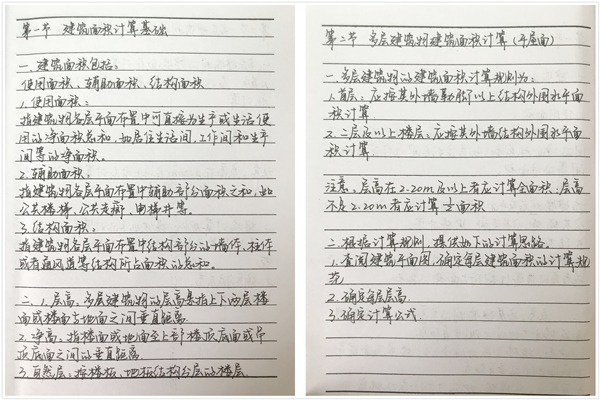 第一节 建筑面积计算基础
一.建筑面积包括:
使用面积、辅助面积、结构面积
1.使用面积:
指建筑物各层平面布置中可直接为生产或生活使
用的净面积总和,如居住生活间,工作间和生产
间等的净面积。
2.辅助面积:
指建筑物各层平面布置中辅助部分面积之和,如
公共楼梯、公共走廊、电梯井等。
3.结构面积:
指建筑物各层平面布置中结构部分的墙体、柱体
或者通风道等结构所占面积的总和。
二、1.层高,多层建筑物的层高是指上下两层楼
面或楼面与地面之间垂直距离.
2.净高,指楼面或地面至上部楼顶底面或吊
顶底面之间的垂直距离
3.自然层,按楼板、地板结构分层的楼层.
第二节 多层建筑物建筑面积计算(平屋面)
一.多层建筑物的建筑面积计算规则为:
1.首层:应按其外墙勒脚以上结构外围水平面
积计算
2.二层及以上楼层,应按其外墙结构外围水平面
积计算.
注意、层高在2.20m及以上者应计算全面积;层高
不足2.20m者应计算1/2面积
二.根据计算规则,提供如下的计算思路。
1.查阅建筑平面图,确定每层建筑面积的计算规
范
2.确定每层层高.
3.确定计算公式.